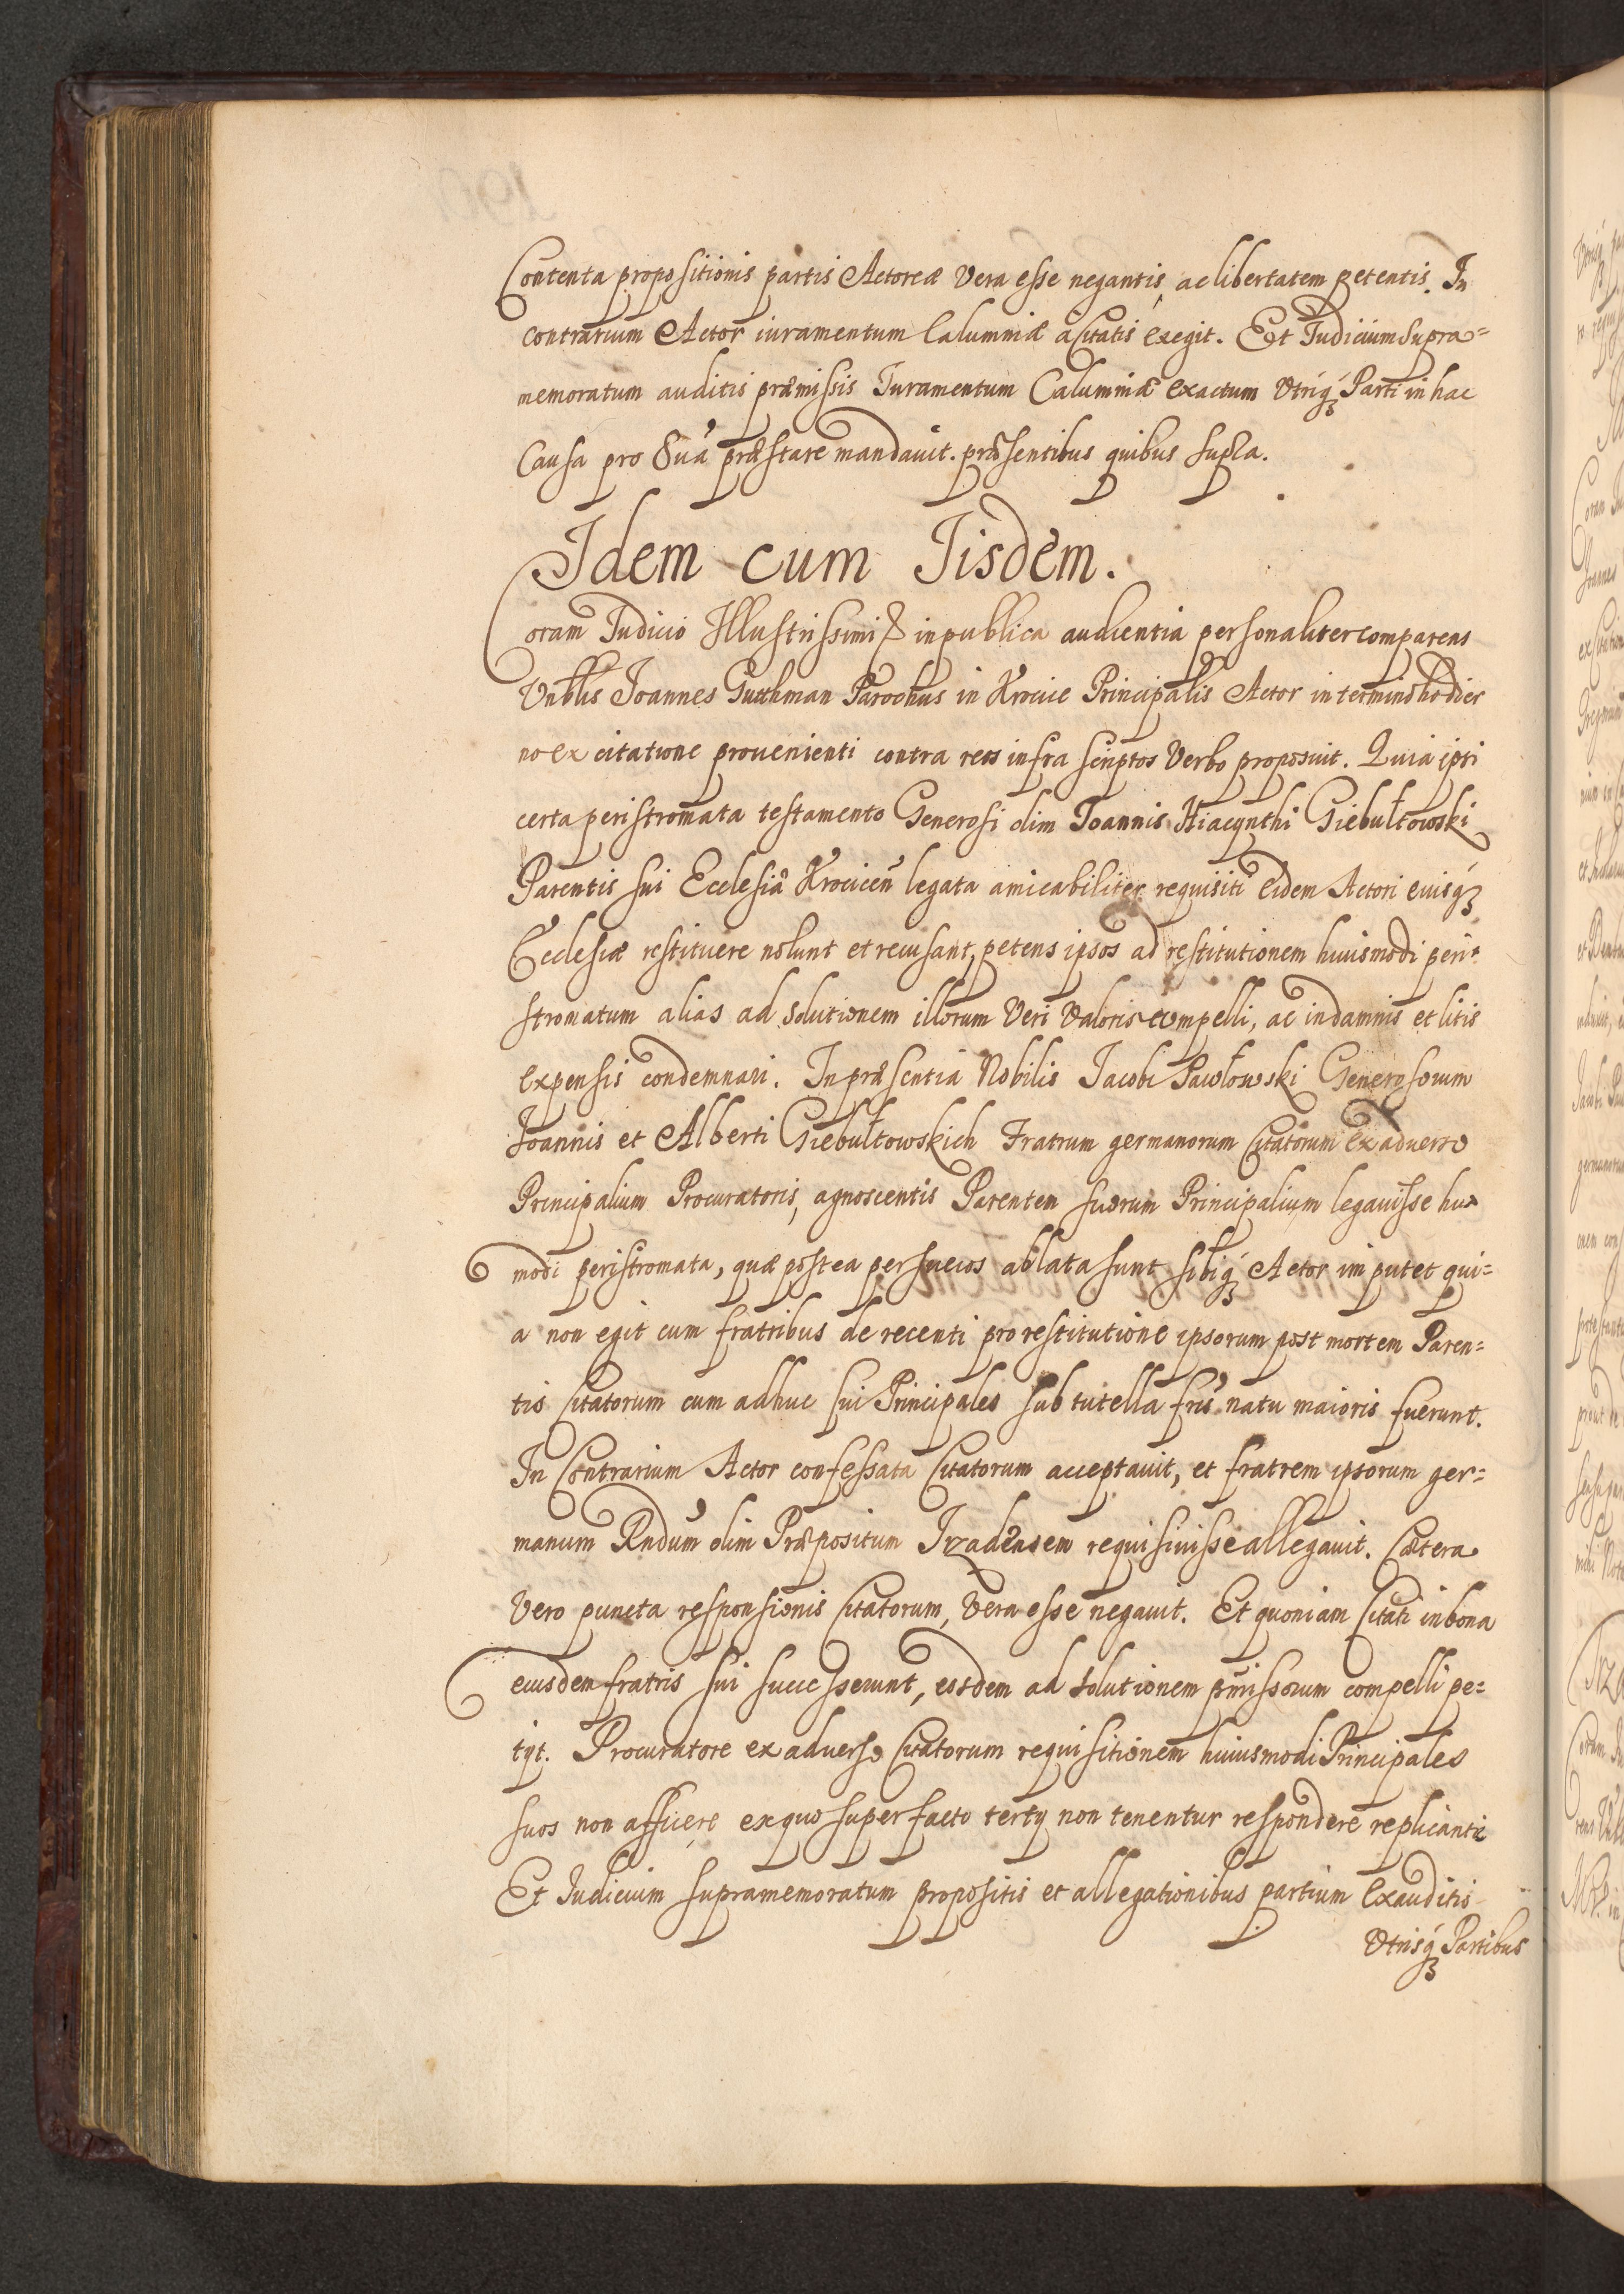 Contenta propositionis partis Actoreæ Vera esse negantis, ac libertatem petentis. In
contrarium Actor iuramentum Calumniæ à Citatis exegit. Et Iudicium Supra=
memoratum auditis præmissis Iuramentum Calumniæ exactum Vtriq́ʒ Parti in hac
Causa pro Suâ præstare mandauit. præsentibus quibus supra.
Idem cum Iisdem.
Coram Iudicio Illustrissimi & in publica audientia personaliter comparens
Vnblis Ioannes Guthman Parochus in Krocice Principalis Actor in termino hodier
no ex citatione prouenienti contra reos infra scriptos Verbo proposuit. Quia ipsi
certa peristromata testamento Generosi olim Ioannis Hiacynthi Giebułtowski
Parentis sui Ecclesiæ Krocicen̄ legata amicabiliter requisiti eidem Actori euisq́ʒ
Ecclesiæ restituere nolunt et recusant, petens ipsos ad restitutionem huiusmodi peri=
stromatum alias ad Solutionem illorum Veri Valoris compelli, ac in damnis et litis
expensis condemnari. In præsentia Nobilis Iacobi Pawłowski Generosorum
Ioannis et Alberti Giebułtowskich Fratrum germanorum Citatorum ex aduerso
Principalium Procuratoris, agnoscentis Parentem suorum Principalium legauisse hui=
modi peristromata, quæ postea per suecos ablata sunt sibiq́ʒ Actor imputet qui=
a non egit cum fratribus de recenti pro restitutione ipsorum post mortem Paren=
tis Citatorum cum adhuc sui Principales sub tutella fris natu maioris fuerunt.
In Contrarium Actor confessata Citatorum acceptauit, et fratrem ipsorum ger=
manum Rndum olim Præpositum Irzadzensem requisiuisse allegauit. Cætera
Vero puncta responsionis Citatorum, Vera esse negauit. Et quoniam Citati in bona
eiusdem fratris sui successerunt, eosdem ad Solutionem pmissorum compelli pe=
tÿt. Procuratore ex aduerso Citatorum requisitionem huiusmodi Principales
suos non afficere ex quo super facto tertÿ non tenentur respondere replicanti
Et Iudicium supramemoratum propositis et allegationibus partium exauditis
Vtrisq́ʒ Partibus